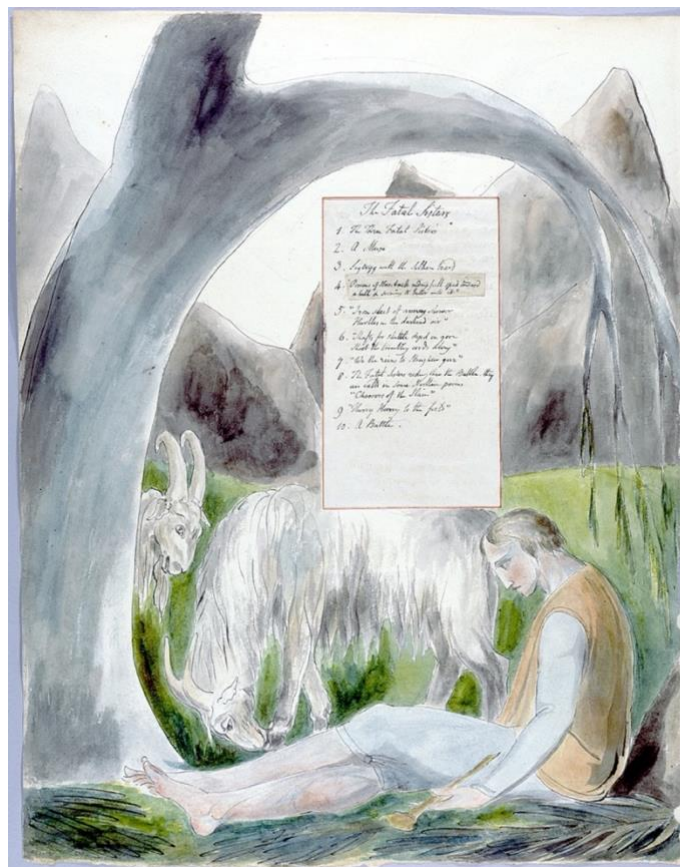 The Fatal Sisters
1. The Three Fatal Sisters
2. A Muse
3. Sigtrygg with the Silken beard
4. full speed toward
5. "Iron Sleet of arrowy shower
Hurtles in the darkend air"
6. "Shafts for shuttles dyed in gore
Shoot the trembling cords along"
7. "We the reins to Slaughter give"
8. The Fatal Sisters riding thro the Battle. they
are calld in some Northern poems
"Choosers of the Slain"
9. "Hurry Hurry to the field"
10. A Battle.